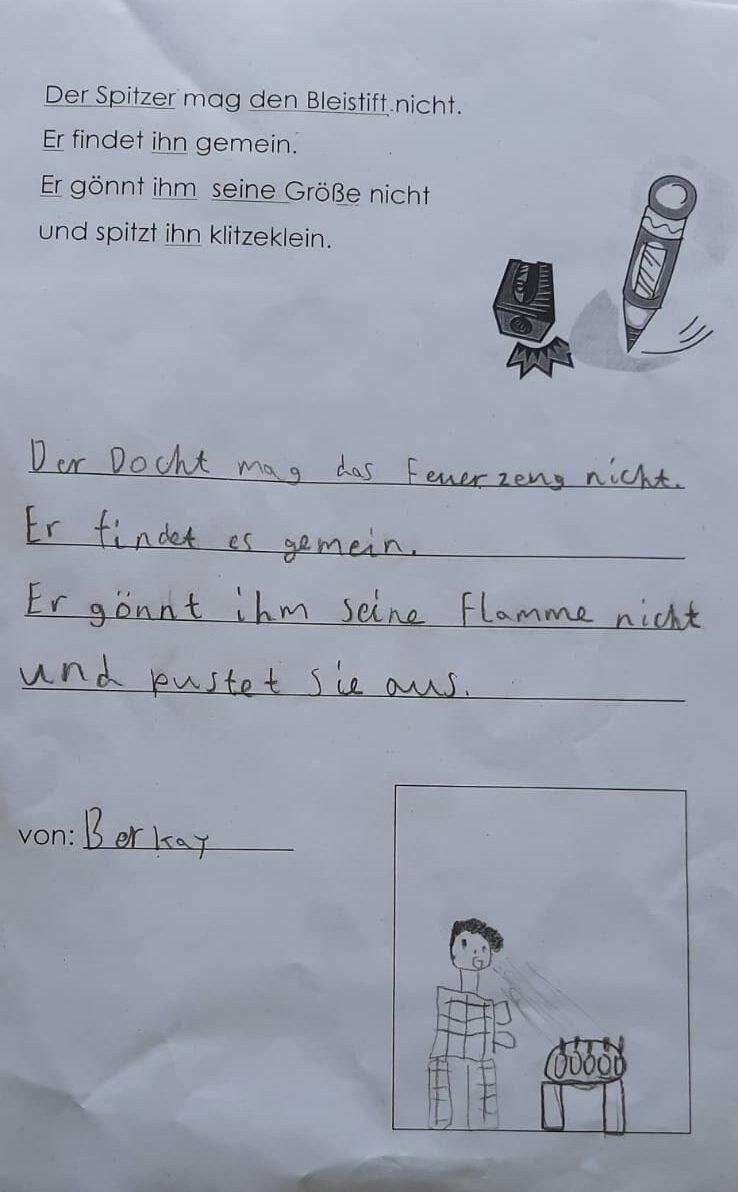 Der Spitzer mag den Bleistift nicht.
Er findet ihn gemein.
Er gönnt ihm seine Größe nicht
und spitzt ihn klitzeklein.
Der Docht mag das Feuerzeug nicht.
Er findet es gemein.
Er gönnt ihm seine Flamme nicht
und pustet sie aus.
von: Berkay